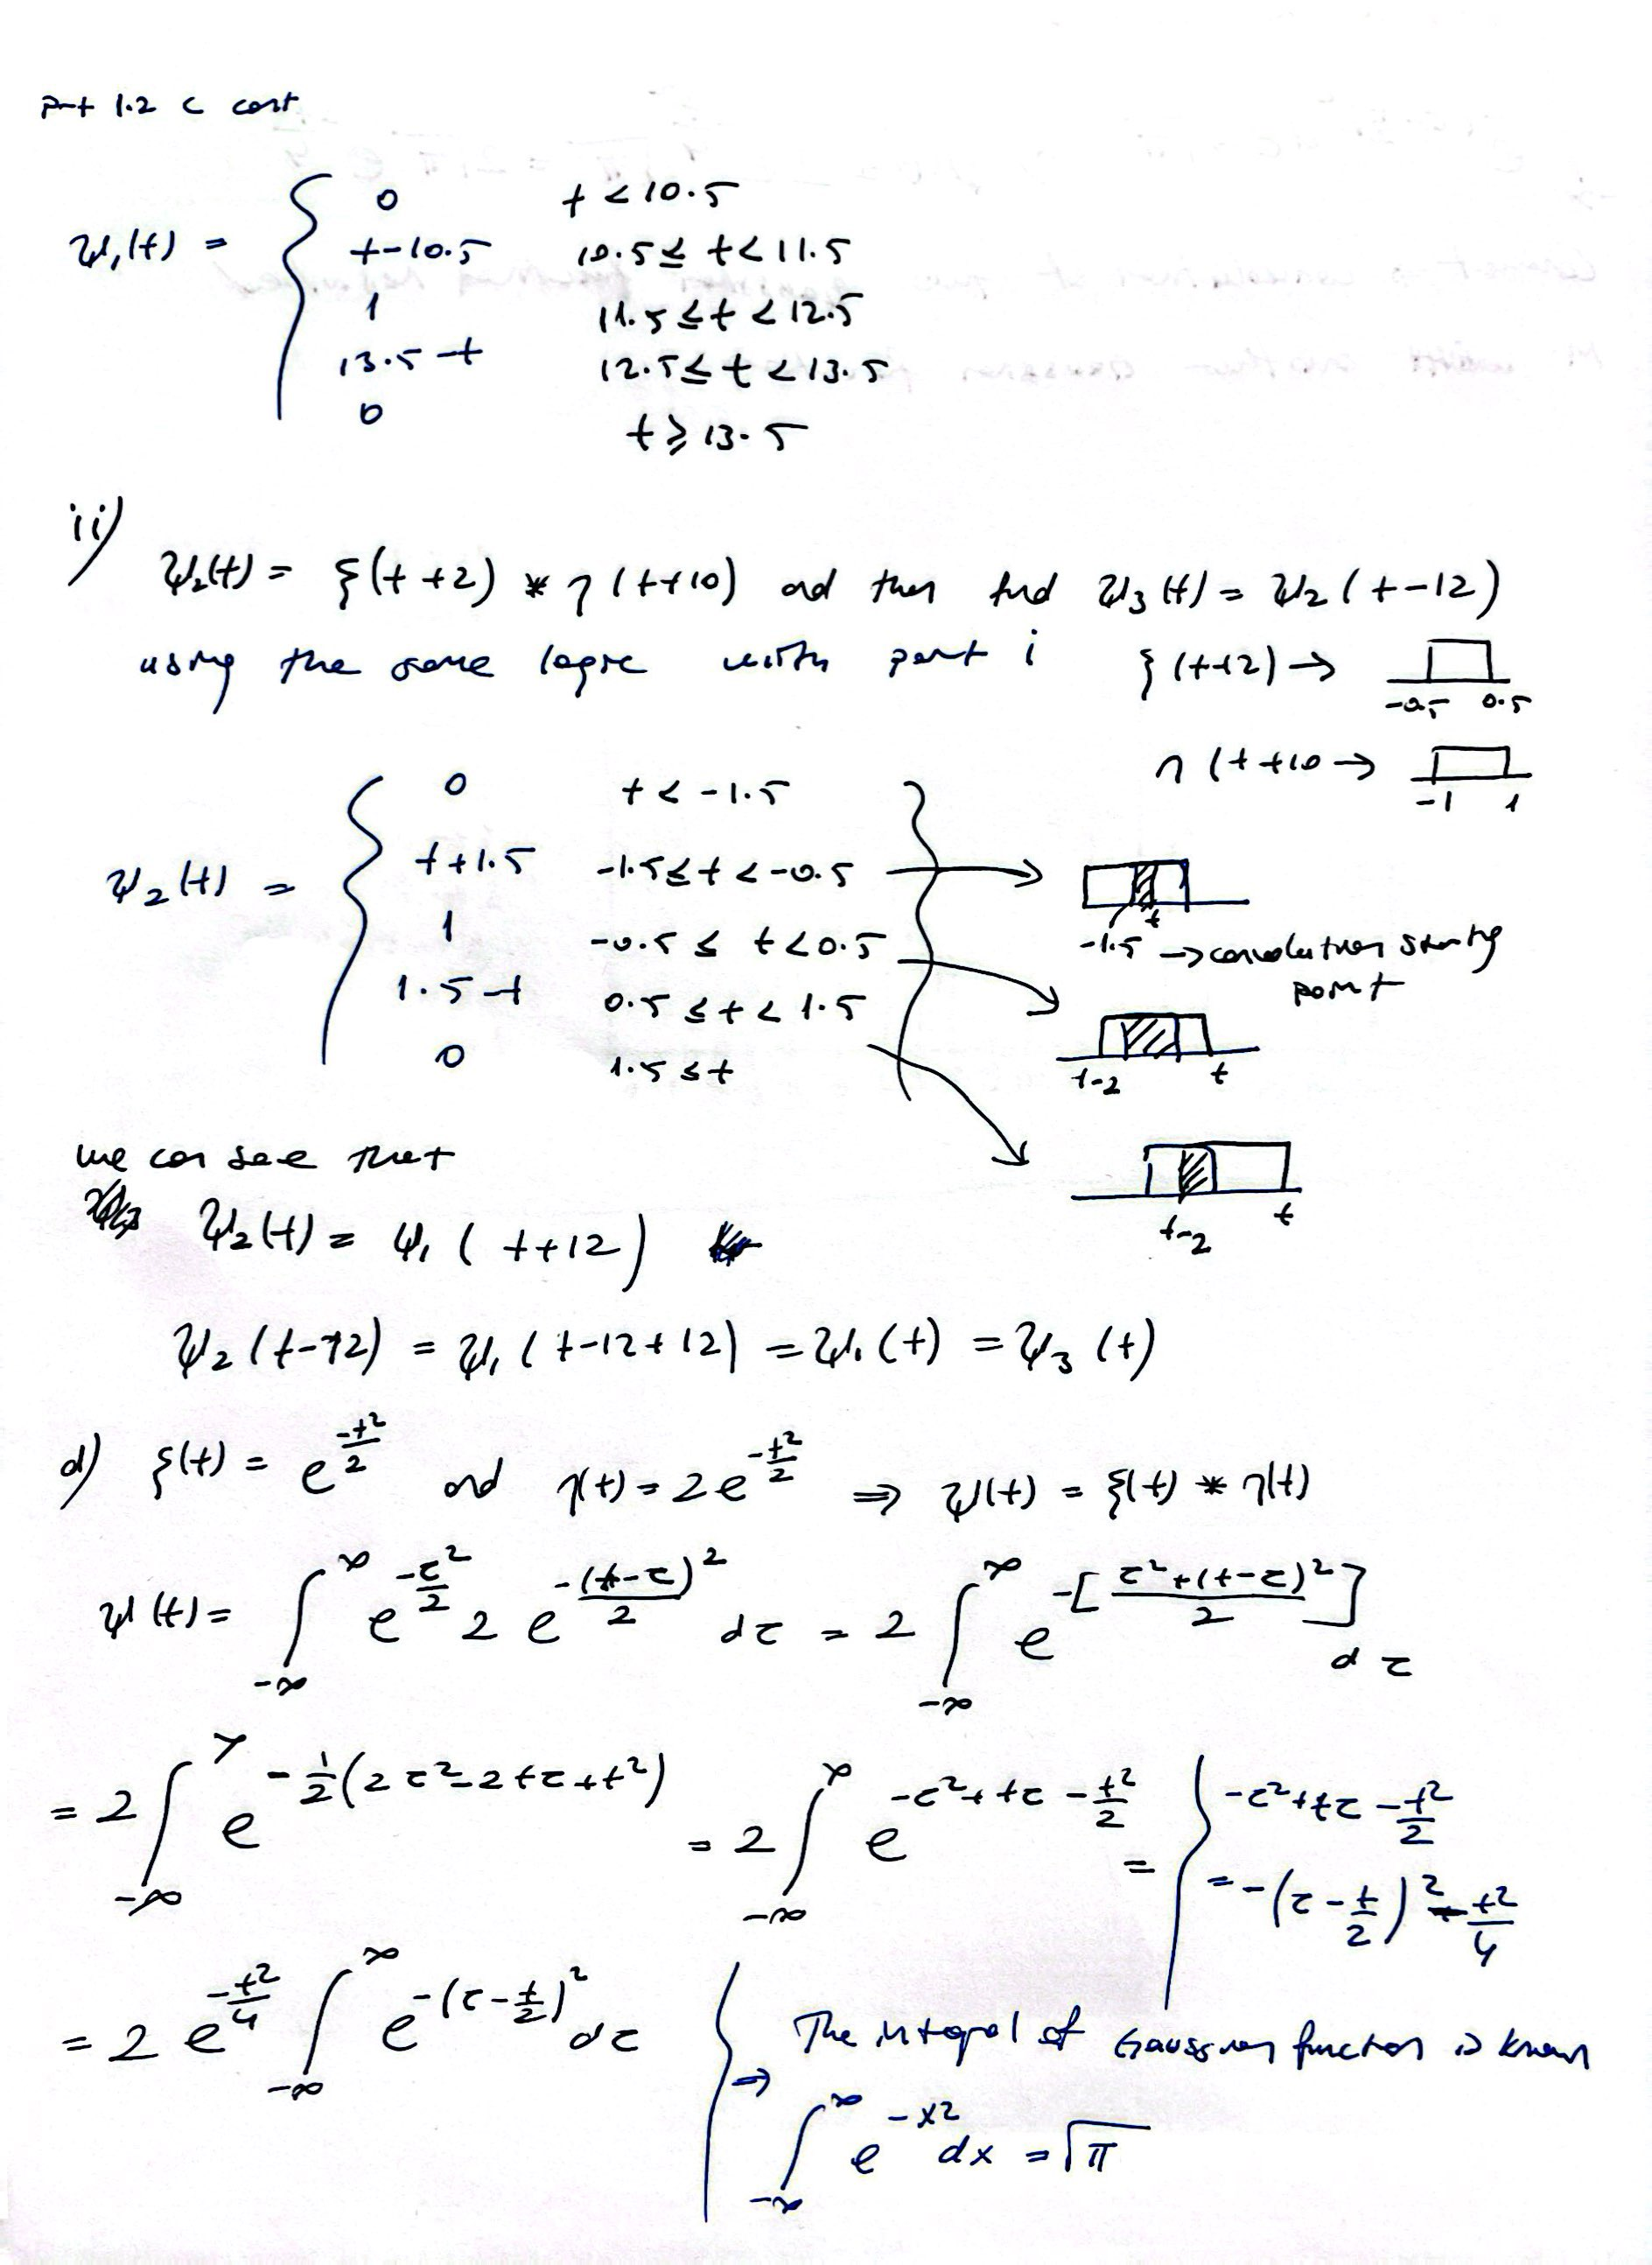 part 1.2 c cont
ψ₁(t) = { 0    t < 10.5
t-10.5    10.5 ≤ t < 11.5
1    11.5 ≤ t < 12.5
13.5-t    12.5 ≤ t < 13.5
0    t ≥ 13.5
ii)
ψ₂(t) = ξ(t+2) * η(t+10) and then find ψ₃(t) = ψ₂(t-12)
using the same logic with part i    ξ(t+2) →
-0.5 0.5
η(t+10 →
-1 1
ψ₂(t) = { 0    t < -1.5
t+1.5    -1.5 ≤ t < -0.5
1    -0.5 ≤ t < 0.5
1.5-t    0.5 ≤ t < 1.5
0    1.5 ≤ t
t
-1.5 → convolution starting
point
t-2 t
t-2 t
we can see that
ψ₂(t) = ψ₁(t+12)
ψ₂(t-12) = ψ₁(t-12+12) = ψ₁(t) = ψ₃(t)
d) ξ(t) = e^(-t²/2) and η(t) = 2e^(-t²/2) ⇒ ψ(t) = ξ(t) * η(t)
ψ(t) = ∫_{-∞}^{∞} e^(-τ²/2) 2 e^(-(t-τ)²/2) dτ = 2 ∫_{-∞}^{∞} e^(-[(τ²+(t-τ)²)/2]) dτ
= 2 ∫_{-∞}^{∞} e^(-½(2τ²-2tτ+t²)) = 2 ∫_{-∞}^{∞} e^(-τ²+tτ-t²/2) = { -τ²+tτ-t²/2
= -(τ-t/2)² - t²/4
= 2 e^(-t²/4) ∫_{-∞}^{∞} e^(-(τ-t/2)²) dτ } ⇒ The integral of Gaussian function is known
∫_{-∞}^{∞} e^(-x²) dx = √π